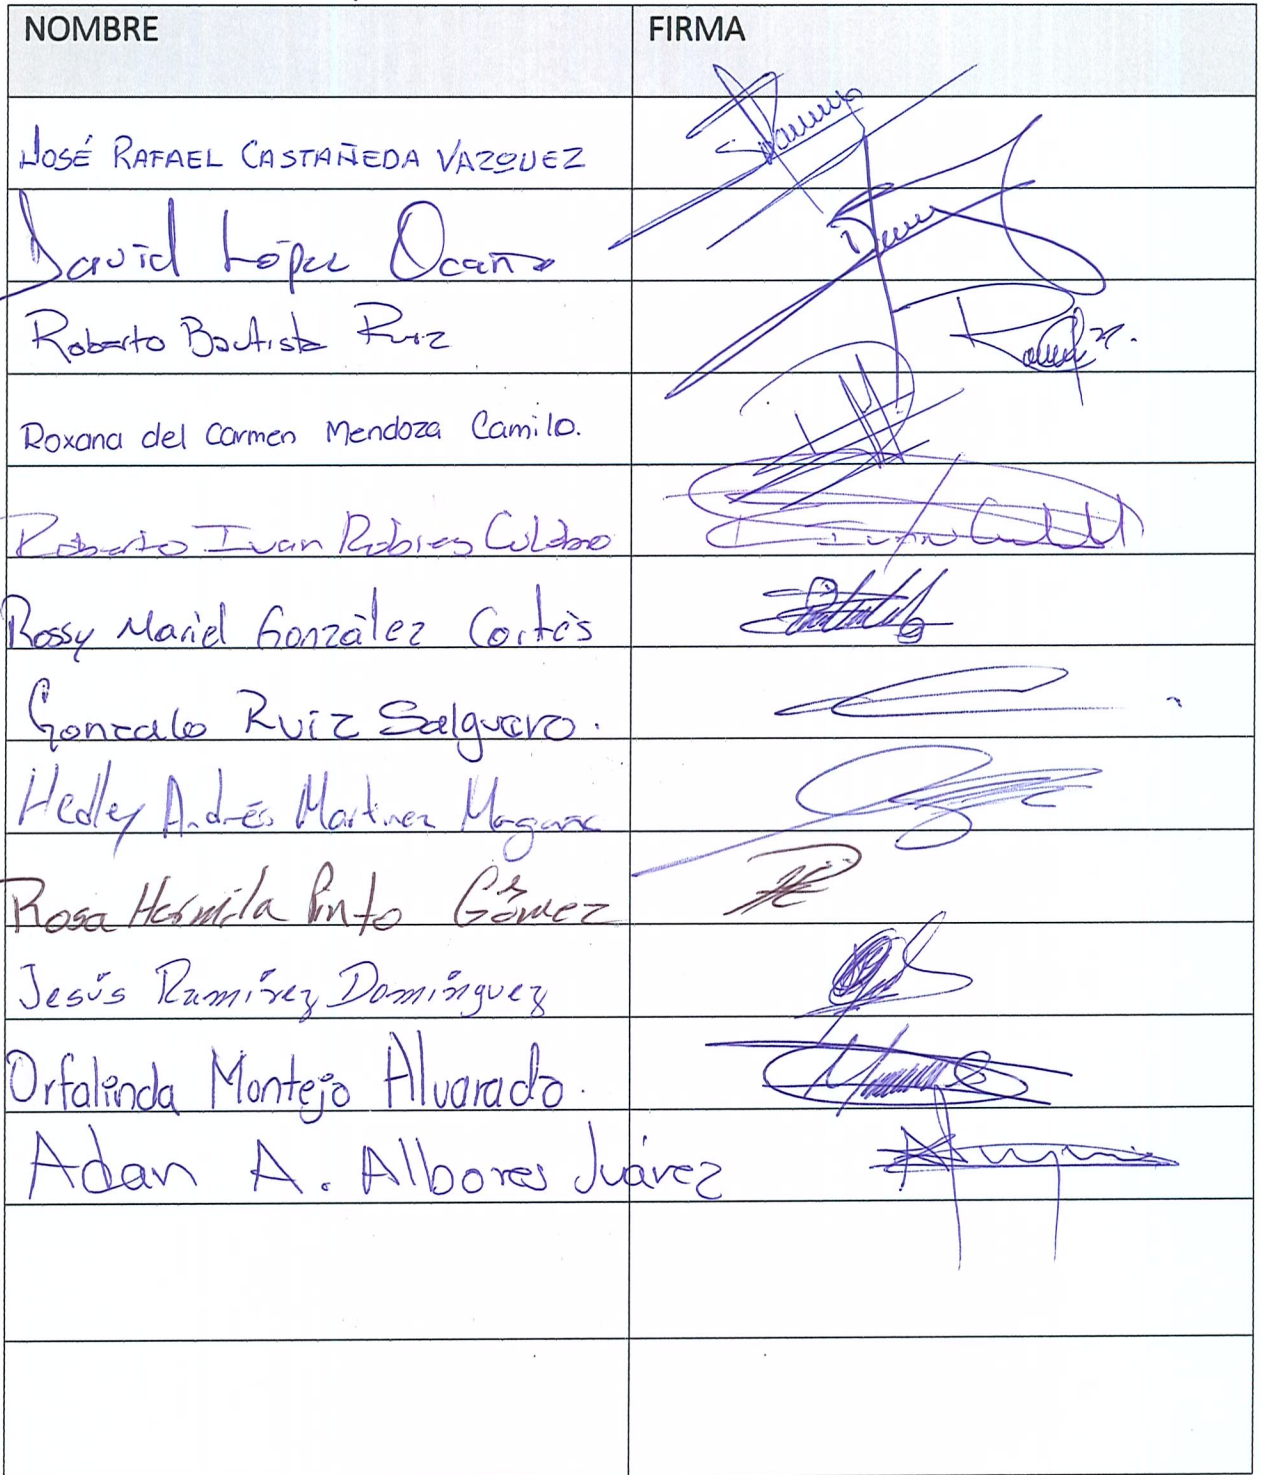 NOMBRE FIRMA
JOSÉ RAFAEL CASTAÑEDA VAZQUEZ
David López Ocaña
Roberto Bautista Ruiz
Roxana del Carmen Mendoza Camilo.
Roberto Ivan Robles
Rossy Mariel Gonzàlez Cortès
Gonzalo Ruiz Salguero.
Hedley Andrés Martinez Magaña
Rosa Hermila Pinto Gómez
Jesús Ramírez Domínguez
Orfalinda Montejo Alvarado.
Adan A. Albores Juárez